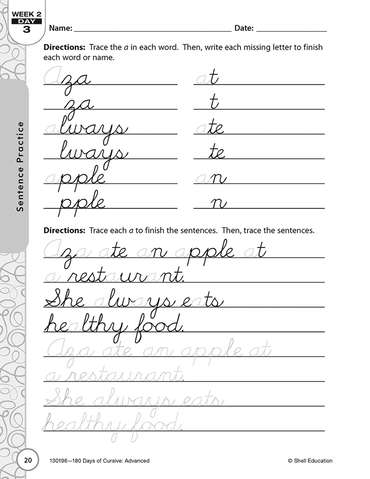 WEEK 2
DAY
3
Name: Date:
Directions: Trace the a in each word. Then, write each missing letter to finish
each word or name.
Aza at
za t
always ate
lways te
apple an
pple n
Sentence Practice
Directions: Trace each a to finish the sentences. Then, trace the sentences.
Aza ate an apple at
a restaurant.
She always eats
healthy food.
Aza ate an apple at
a restaurant.
She always eats
healthy food.
20 130198—180 Days of Cursive: Advanced © Shell Education